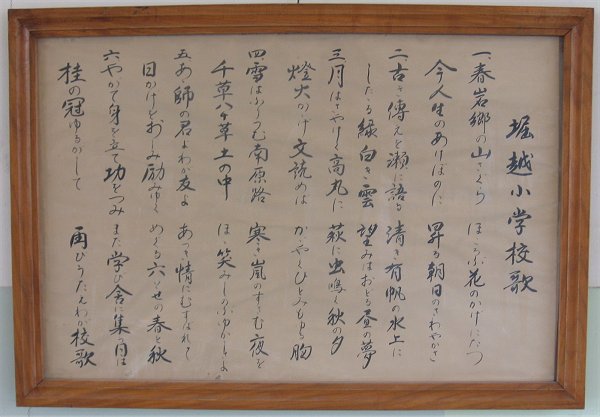 堀越小学校歌
一、春岩郷の山さくら ほころぶ花のかけにたつ
今人生のありほのに 昇る朝日のさわやかさ
二、古き傳えを瀬に語る 清き有帆の水上に
したゝる緑白き雲 望みはおどる昼の夢
三、月はさやけく高丸に 萩に虫鳴く秋の夕
燈火かゝげ文読めは かゞやくひとみもゆる胸
四、雪はふゝむ南原路 寒き嵐のすさむ夜を
千草八千草土の中 ほゝ笑みしのぶゆかしさよ
五、あゝ師の君よわが友よ あつき情にむすばれて
日かけをおしみ励みゆく めぐる六とせの春と秋
六、やがて身を立て功をつみ また学び舎に集う日は
桂の冠ゆるがして 再びうたえわが校歌